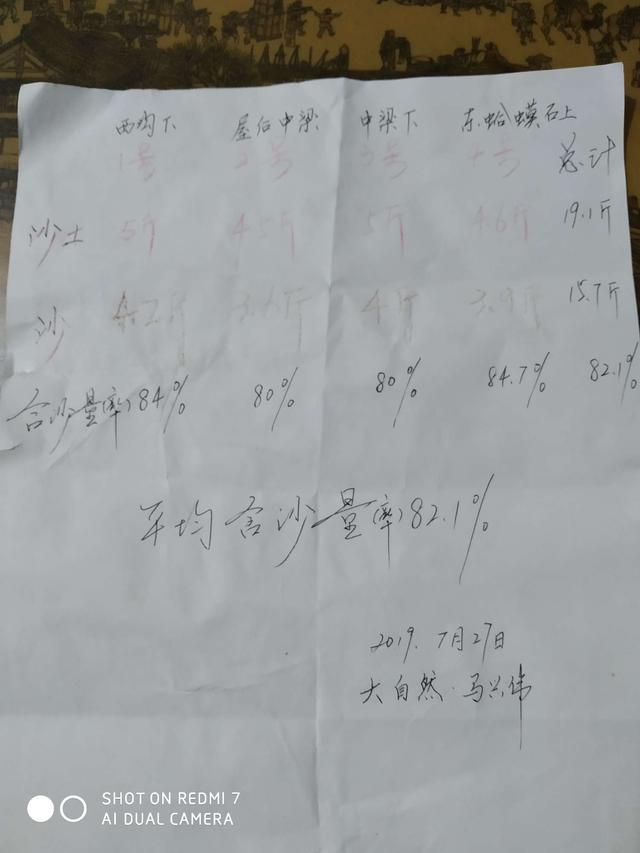 西沟下 屋后中梁 中梁下 东蛤蟆石上
1号 2号 3号 4号 总计
沙土 5斤 4.5斤 5斤 4.6斤 19.1斤
沙 4.2斤 3.6斤 4斤 3.9斤 15.7斤
含沙量(率)84% 80% 80% 84.7% 82.1%
平均含沙量(率)82.1%
2019.7月27日
大自然·马兴伟
SHOT ON REDMI 7
AI DUAL CAMERA